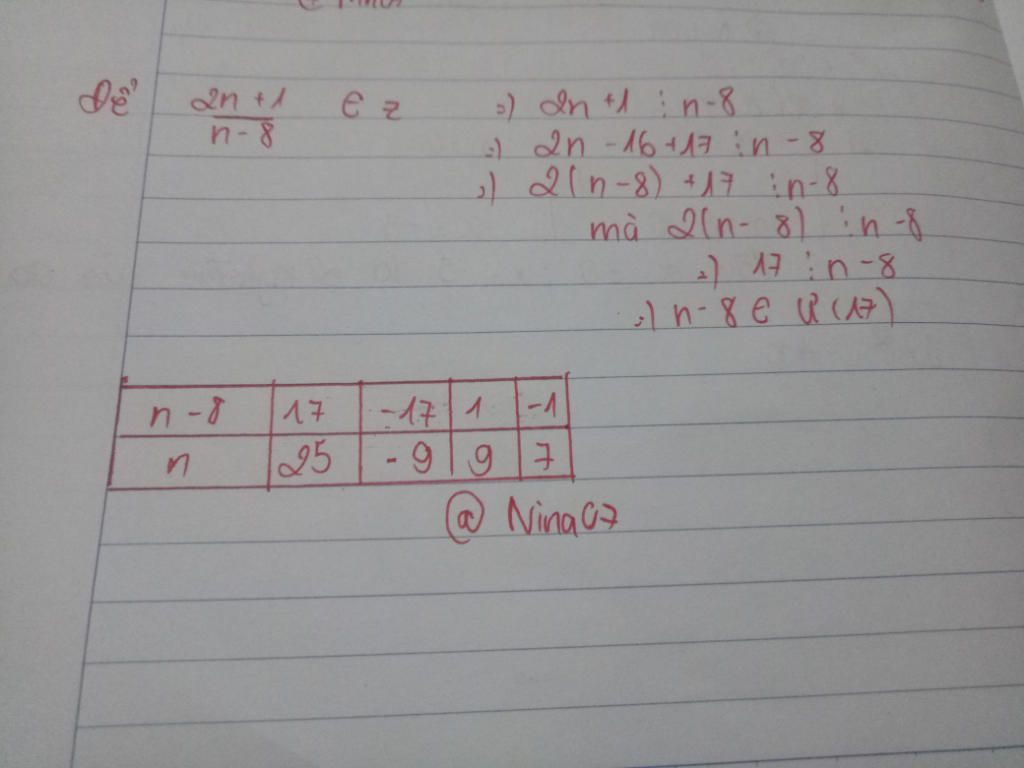 Để 2n+1/n-8 ∈ z => 2n+1 ⋮ n-8
=> 2n -16+17 ⋮ n-8
=> 2(n-8) +17 ⋮ n-8
mà 2(n-8) ⋮ n-8
=> 17 ⋮ n-8
=> n-8 ∈ Ư(17)
n-8 17 -17 1 -1
n 25 -9 9 7
@ Nina07